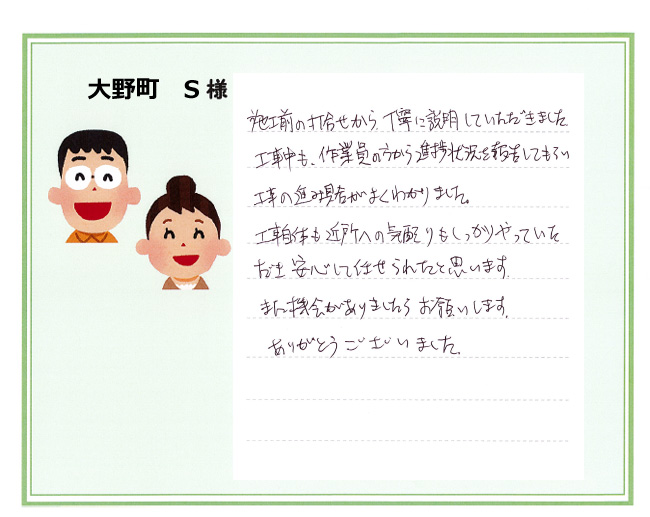 大野町 S様
施工前の打合せから、丁寧に説明していただきました
工事中も、作業員の方から進捗状況を報告してもらい
工事の進み具合がよくわかりました。
工事自体も近所への気配りもしっかりやっていた
だき 安心して任せられたと思います。
また機会がありましたらお願いします。
ありがとうございました。